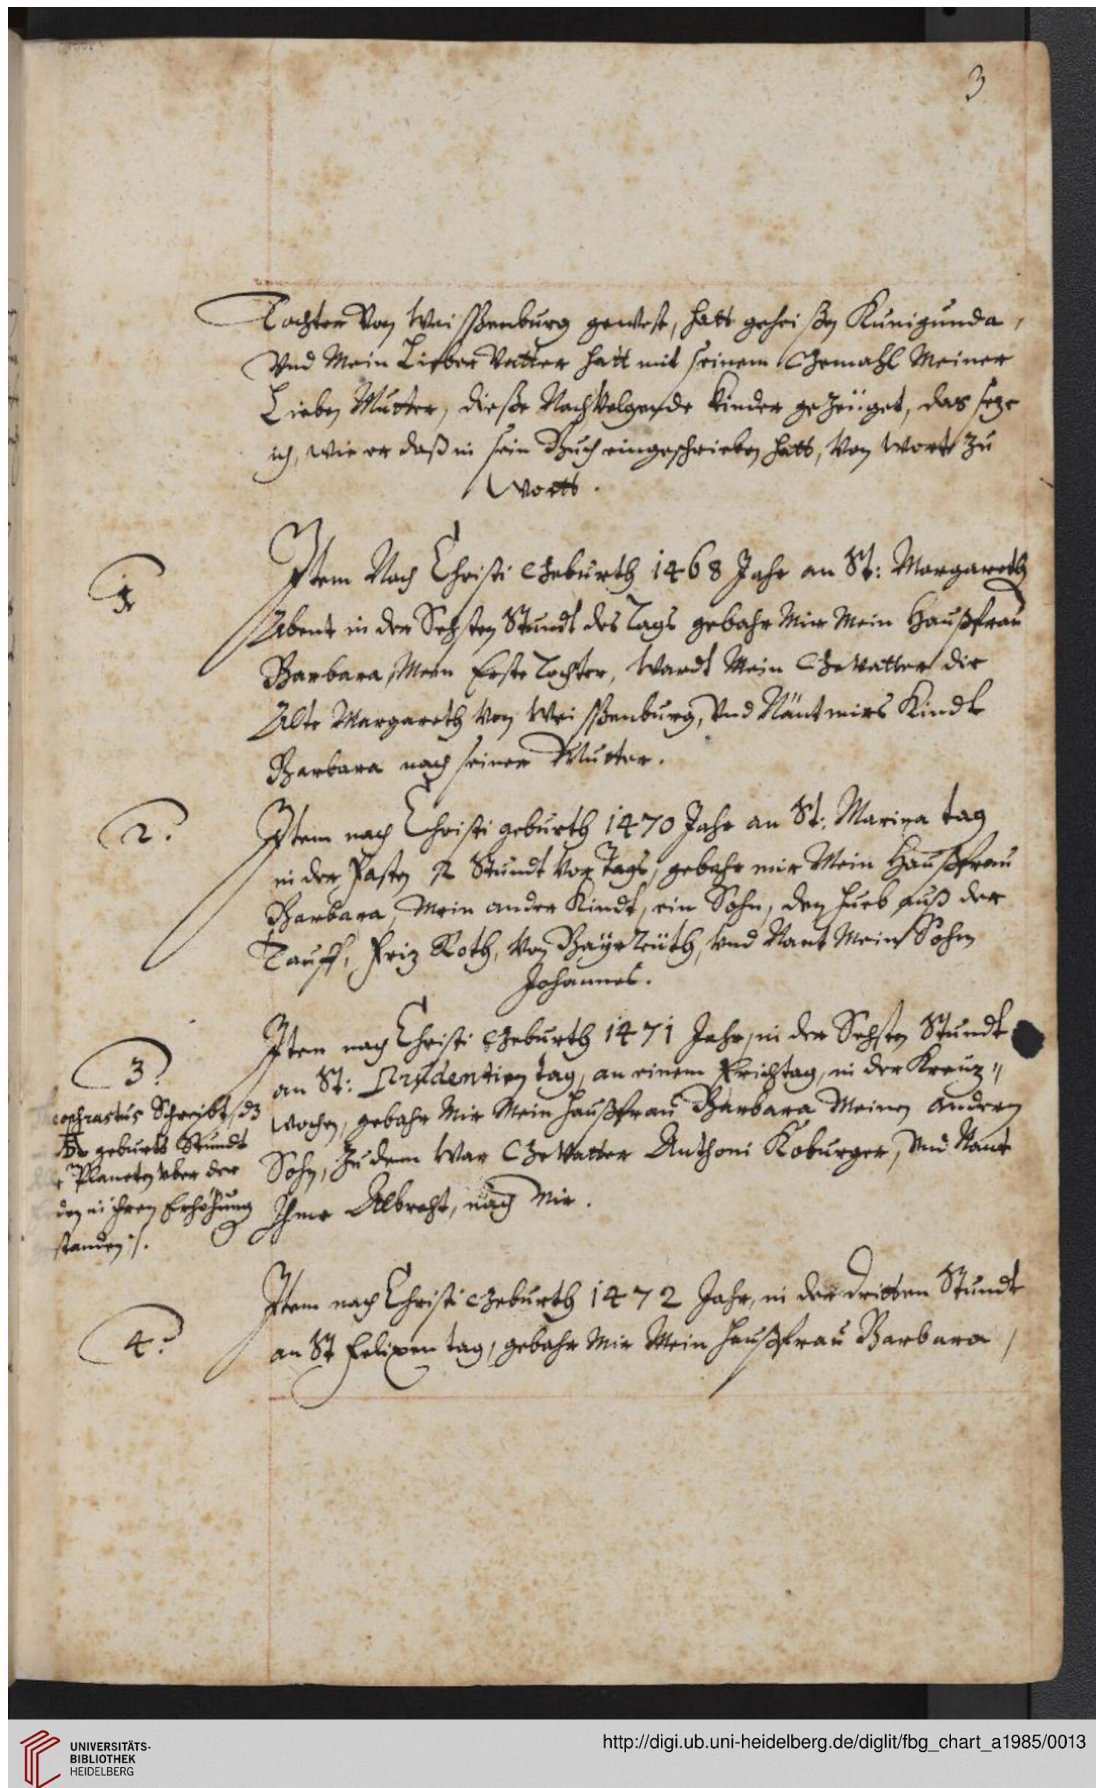 3
Tochter Von Weissenburg gewest, hatt geheissen Kunigunda,
Vnd Mein Lieber Vatter hatt mit seinem Gemahl Meiner
Lieben Mutter, diesse Nachvolgende kinder gezeüget, das sez
ich, wie er dass in sein Buch eingeschrieben hatt, Von Wortt zu
Wortt.
1
Item Nach Christi Geburth 1468 Jahr an St: Margareth
Abent in der Sechsten Stundt des Tags gebahr Mir Mein Haußfrau
Barbara, Mein Erste Tochter, Wardt Mein Gevatter die
Alte Margareth Von Weissenburg, Vnd Nänt mirs Kindt
Barbara nach seiner Mutter.
2.
Item nach Christi geburth 1470 Jahr an St: Marina tag
in der Fasten 2 Stundt Vor Tags, gebahr mir Mein Haußfrau
Barbara, Mein ander Kindt, ein Sohn, den hueb auß der
Tauff, Friz Roth, Von Bayrreüth, Vnd Nant Mein Sohn
Johannes.
3.
Item nach Christi Geburth 1471 Jahr, in der Sechsten Stundt
an St: Prudentien tag, an einem Erichtag, in der Kreuz"
wochen, gebahr Mir Mein Haußfrau Barbara Meinen andern
Sohn, zu dem War Gevatter Anthoni Koburger, Vnd Nant
Ihme Albrecht, nach Mir.
eophrastus Schreibt, dz
geburts Stundt
Planeten vber der
den in ihren Erhöhung
standen ./.
4.
Item nach Christi Geburth 1472 Jahr, in der dritten Stundt
an St Felixen tag, gebahr Mir Mein Haußfrau Barbara,
UNIVERSITÄTS-
BIBLIOTHEK
HEIDELBERG
http://digi.ub.uni-heidelberg.de/diglit/fbg_chart_a1985/0013